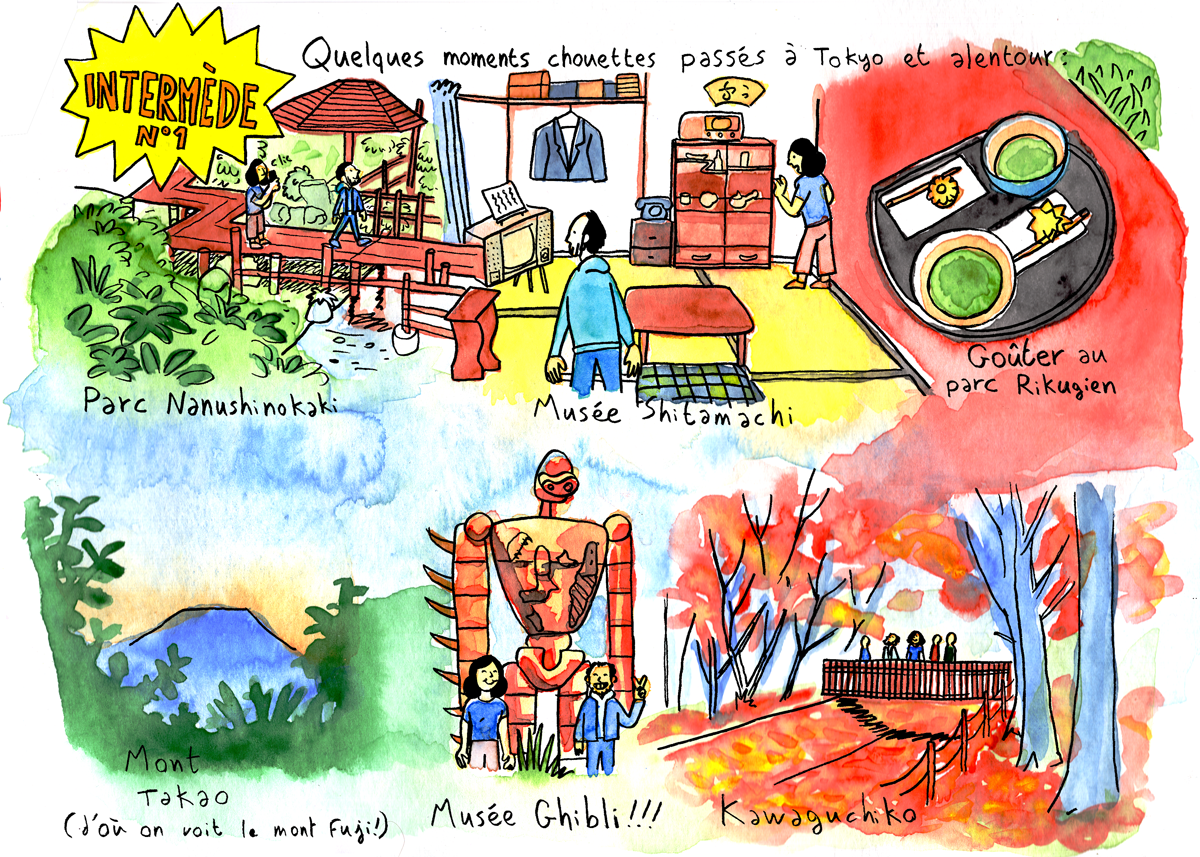 INTERMÈDE
N°1
Quelques moments chouettes passés à Tokyo et alentour:
clic
Parc Nanushinokaki
Musée Shitamachi
Goûter au
parc Rikugien
Mont
Takao
(d'où on voit le mont Fuji!)
Musée Ghibli!!!
Kawaguchiko